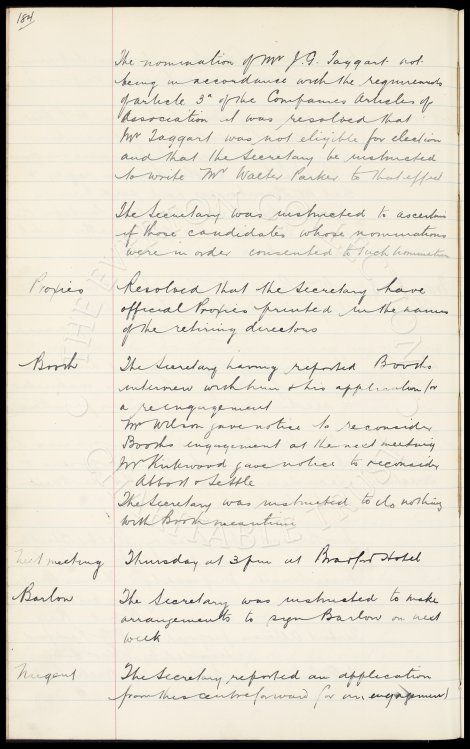 184
The nomination of Mr J. G. Taggart not
being in accordance with the requirements
of article 3a of the Companies Articles of
Association it was resolved that
Mr Taggart was not eligible for election
and that the Secretary be instructed
to write Mr Walter Parker to that effect
The Secretary was instructed to ascertain
if those candidates whose nominations
were in order consented to such nomination
Proxies Resolved that the Secretary have
official Proxies printed in the names
of the retiring directors
Booth The Secretary having reported Booths
interview with him & his application for
a reengagement
Mr Wilson gave notice to reconsider
Booths engagement at the next meeting
Mr Kirkwood gave notice to reconsider
Abbott & Settle
The Secretary was instructed to do nothing
with Booth meantime
Next meeting Thursday at 3 pm at Bradford Hotel
Barlow The Secretary was instructed to make
arrangements to sign Barlow on next
week
Nugent The Secretary reported an application
from this centre forward for an engagement
THE EVERTON COLLECTION
CHARITABLE TRUST